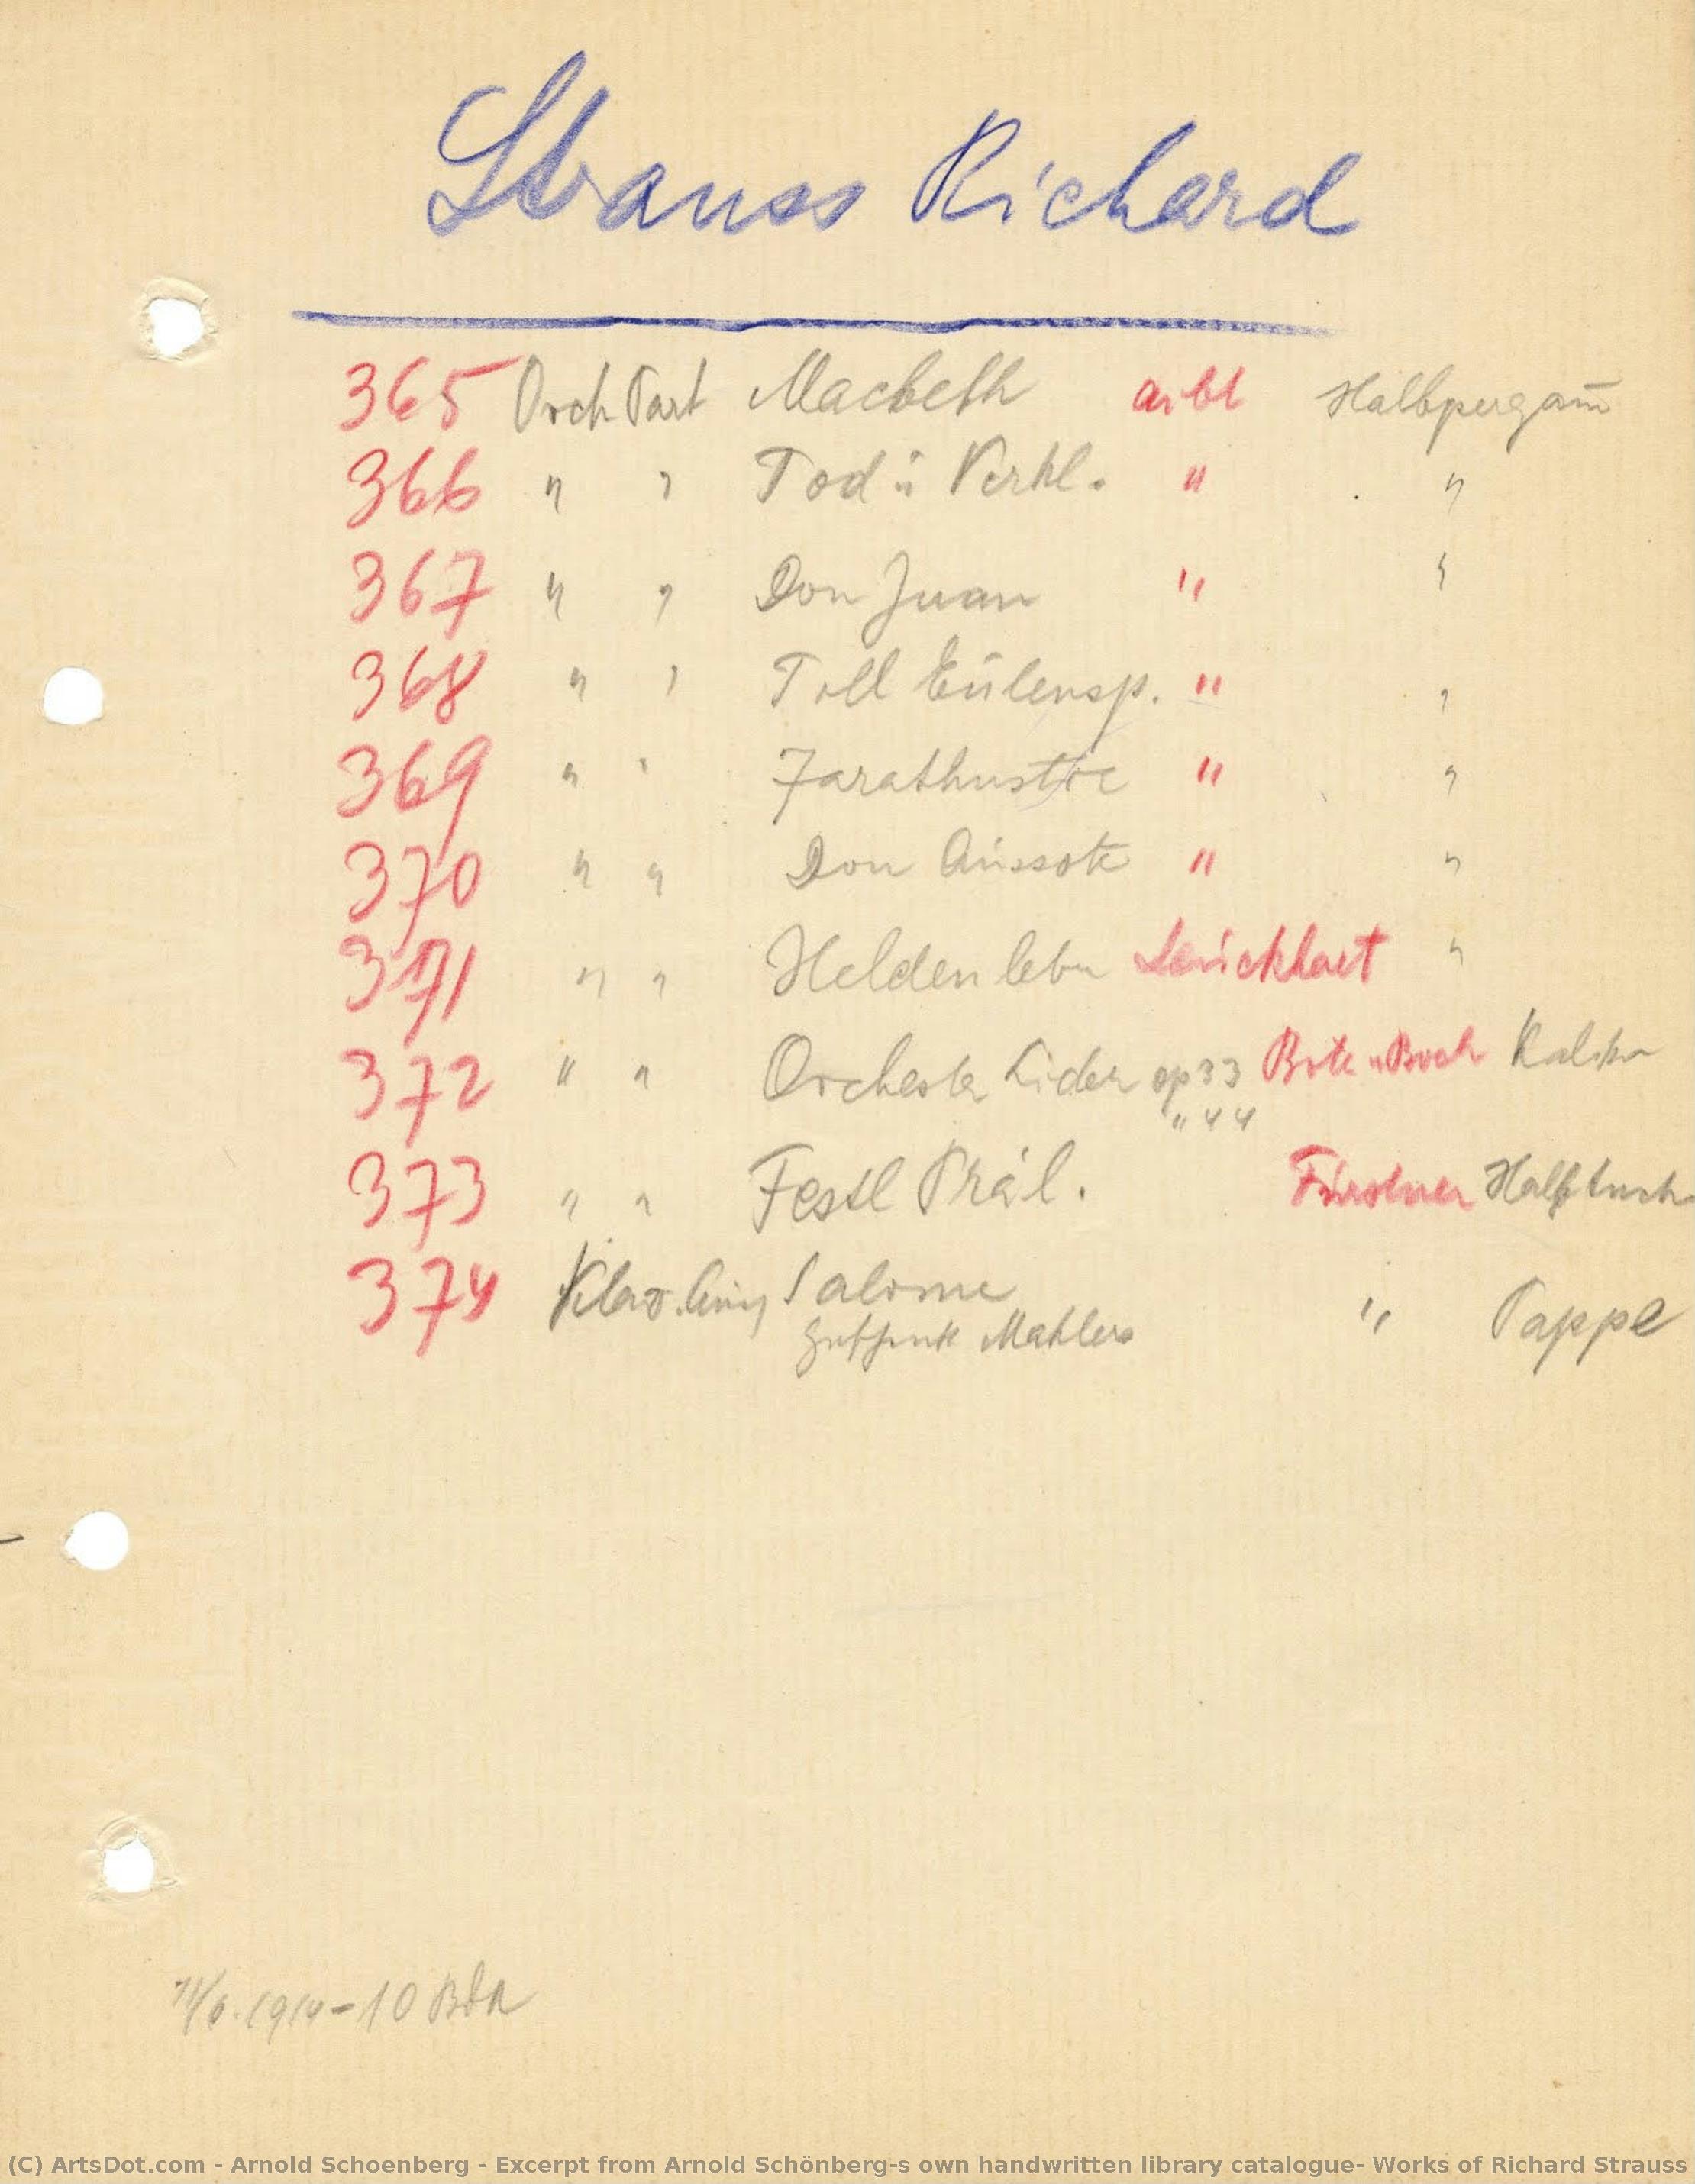 Strauss Richard
365 Orch Part Macbeth aibl Halbpergam̄
366 " " Tod u Verkl. " "
367 " " Don Juan " "
368 " " Till Eulensp. " "
369 " " Zarathustra " "
370 " " Don Quixote " "
371 " " Heldenleben Leuckhart "
372 " " Orchester Lieder op 33 Bote u Bock
" 44
373 " " Festl Präl. Fürstner Halbtuch
374 Klav. Salome " Pappe
Mahlers
1914 - 10
(C) ArtsDot.com - Arnold Schoenberg - Excerpt from Arnold Schönberg-s own handwritten library catalogue- Works of Richard Strauss